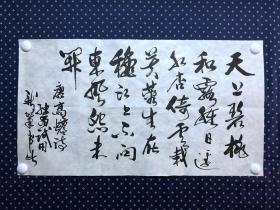 天上碧桃
和露種日边
红杏倚雲栽
芙蓉生在
秋江上不向
東風怨未
開
唐高蟾詩